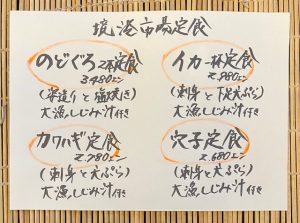 境港市場定食
のどぐろ2本定食
3,480エン
(姿造りと塩焼き)
大漁しじみ汁付き
イカ一杯定食
2,980エン
(刺身と下足天ぷら)
大漁しじみ汁付き
カワハギ定食
2,780エン
(刺身と天ぷら)
大漁しじみ汁付き
穴子定食
2,680エン
(刺身と天ぷら)
大漁しじみ汁付き